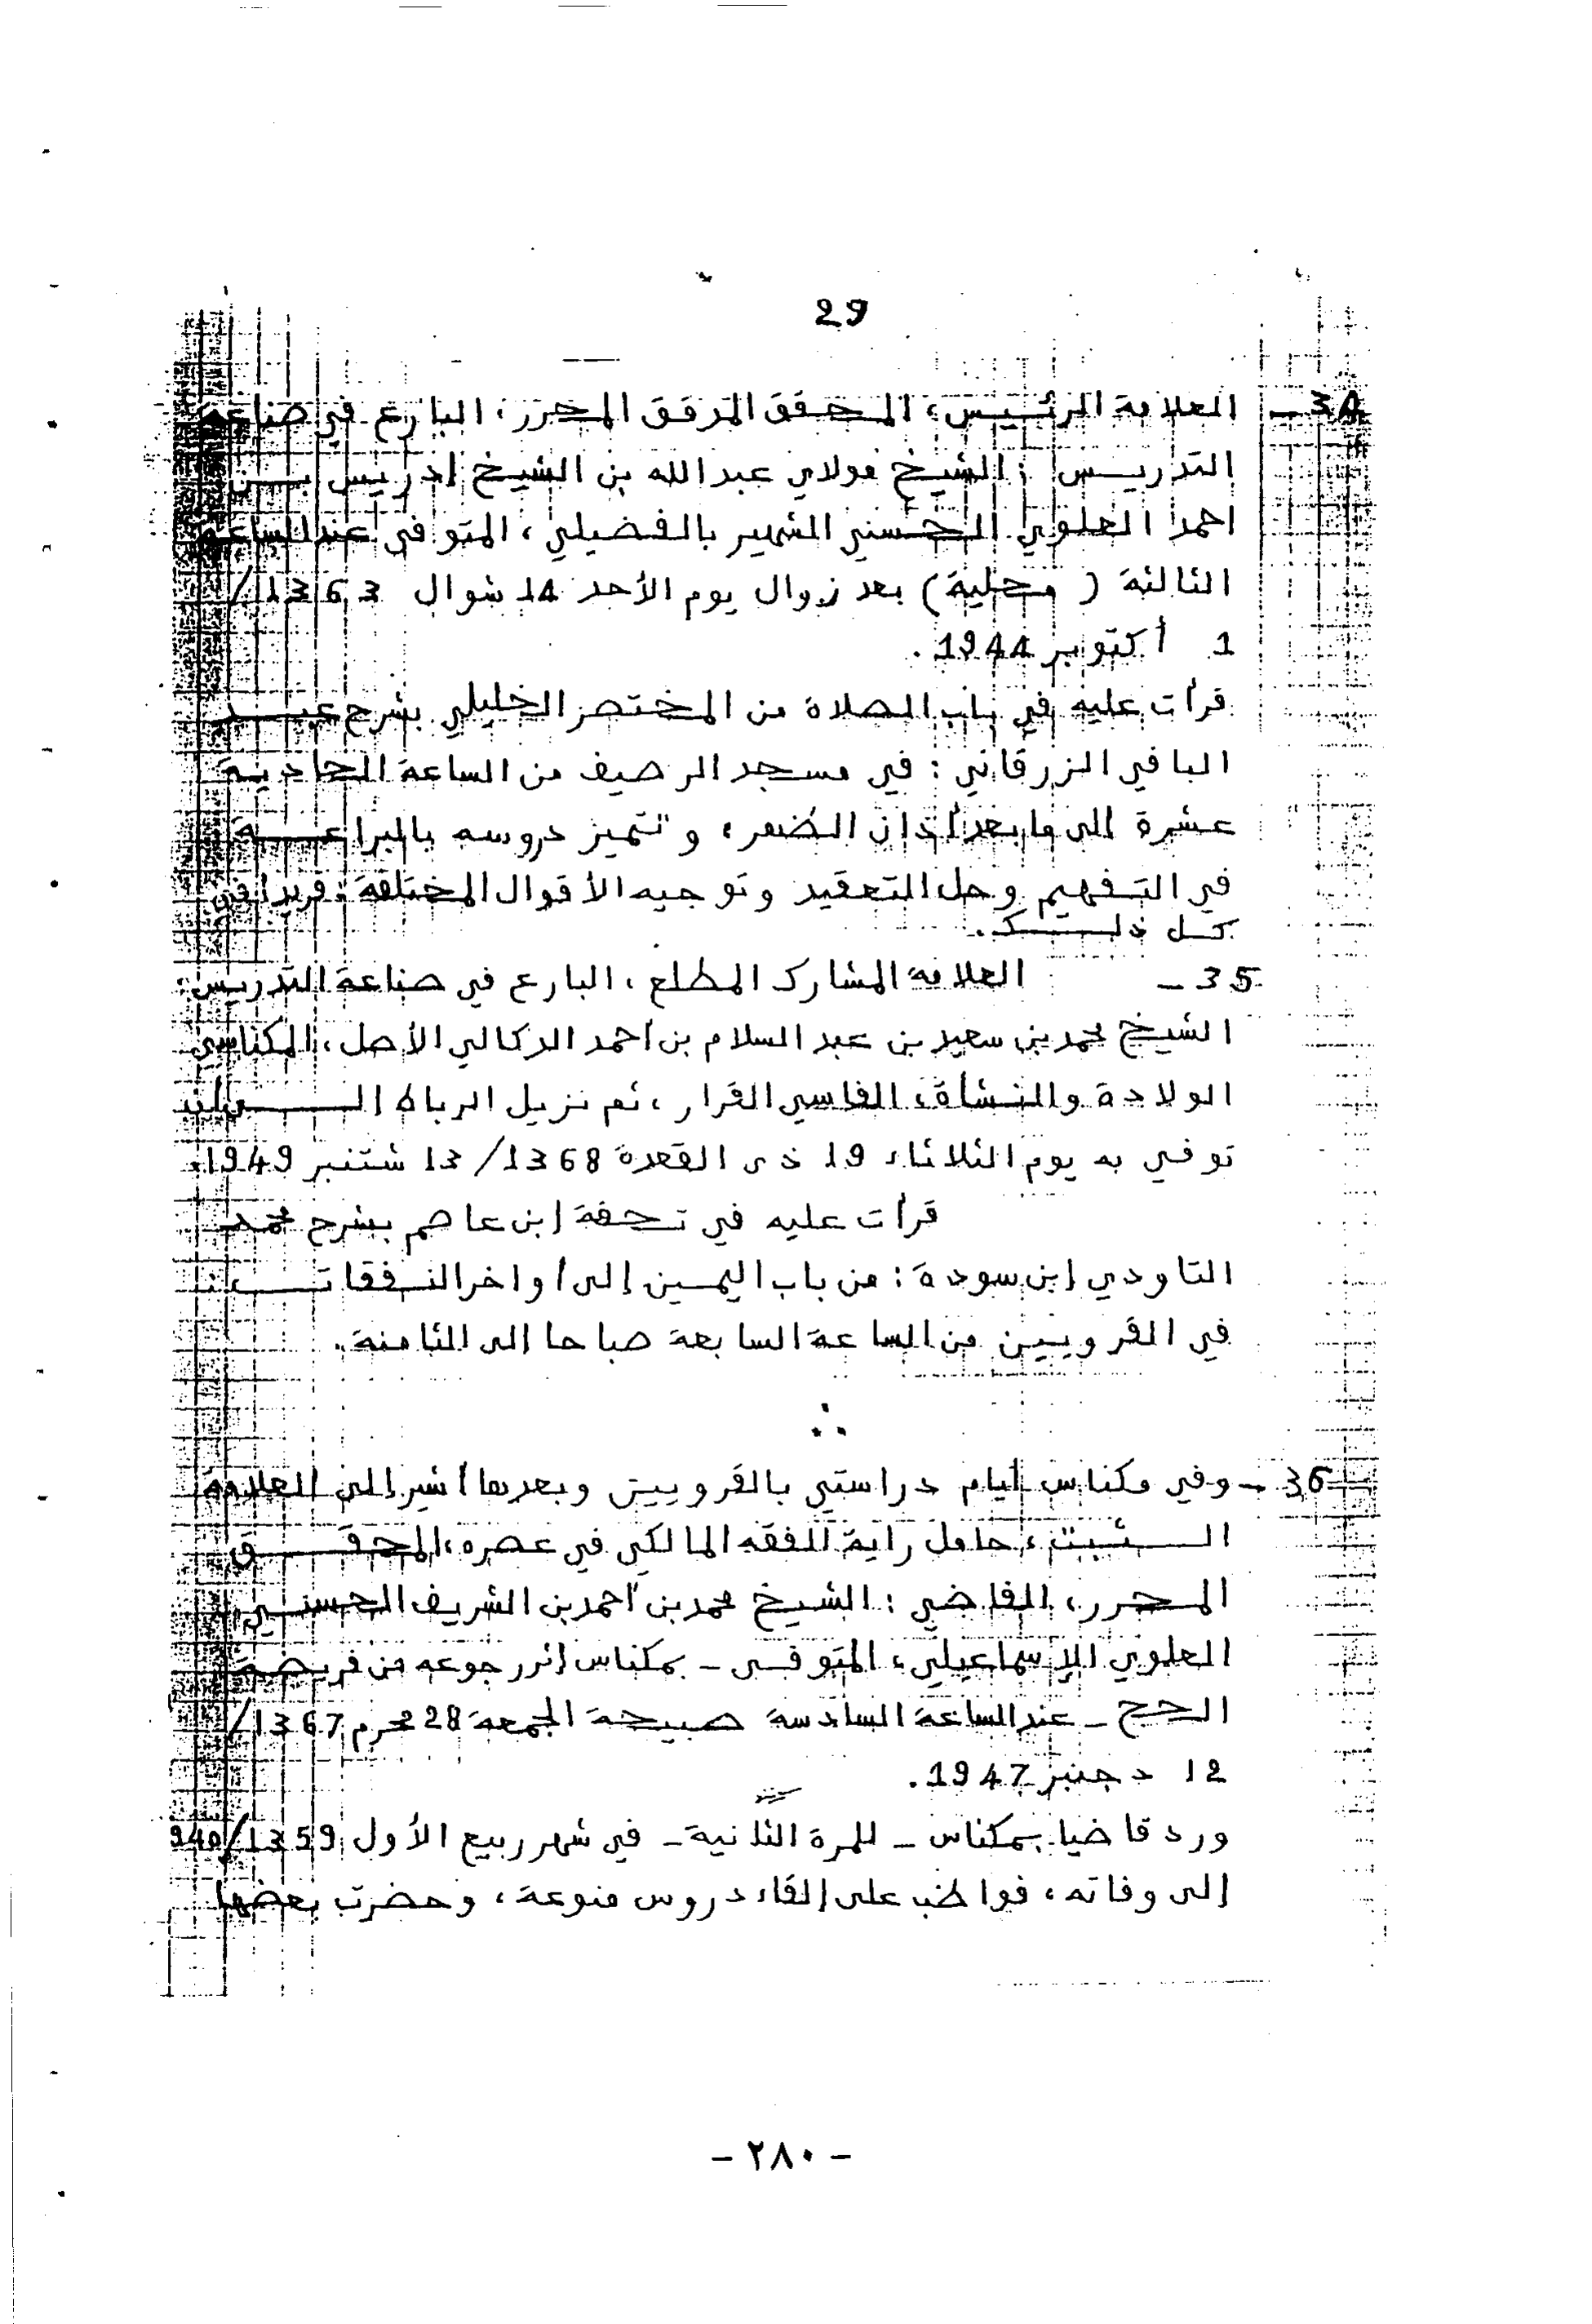 29
34 - العلامة الرئيس، المحقق المدقق المحرر، البارع في صناعة
التدريس : الشيخ مولاي عبد الله بن الشيخ إدريس بن
احمد العلوي الحسني الشهير بالفضيلي، المتوفى عند الساعة
الثالثة ( محلية) بعد زوال يوم الأحد 14 شوال 1363/
1 أكتوبر 1944.
قرأت عليه في باب الصلاة من المختصر الخليلي بشرح عبد
الباقي الزرقاني : في مسجد الرصيف من الساعة الحادية
عشرة إلى ما بعد أذان الظهر، وتتميز دروسه بالبراعة
في التفهيم وحل التعقيد وتوجيه الأقوال المختلفة : فريدا في
كل ذلك.
35 - العلامة المشارك المطلع، البارع في صناعة التدريس:
الشيخ محمد بن سعيد بن عبد السلام بن أحمد الدكالي الأصل، المكناسي
الولادة والنشأة، الفاسي القرار، ثم نزيل الرباط
توفي به يوم الثلاثاء 19 ذي القعدة 1368/ 13 شتنبر 1949.
قرأت عليه في تحفة ابن عاصم بشرح محمد
التاودي ابن سودة : من باب اليمين إلى أواخر النفقات :
في القرويين من الساعة السابعة صباحا إلى الثامنة.
36 - وفي مكناس أيام دراستي بالقرويين وبعدها أشير إلى العلامة
الثبت، حامل راية الفقه المالكي في عصره، المحقق
المحرر، القاضي : الشيخ محمد بن أحمد بن الشريف الحسني
العلوي الإسماعيلي، المتوفى - بمكناس إثر رجوعه من فريضة
الحج - عند الساعة السادسة صبيحة الجمعة 28 محرم 1367/
12 دجنبر 1947.
ورد قاضيا بمكناس - للمرة الثانية - في شهر ربيع الأول 1359/940
إلى وفاته، فواظب على إلقاء دروس منوعة، وحضرت بعضها
- ٢٨٠ -